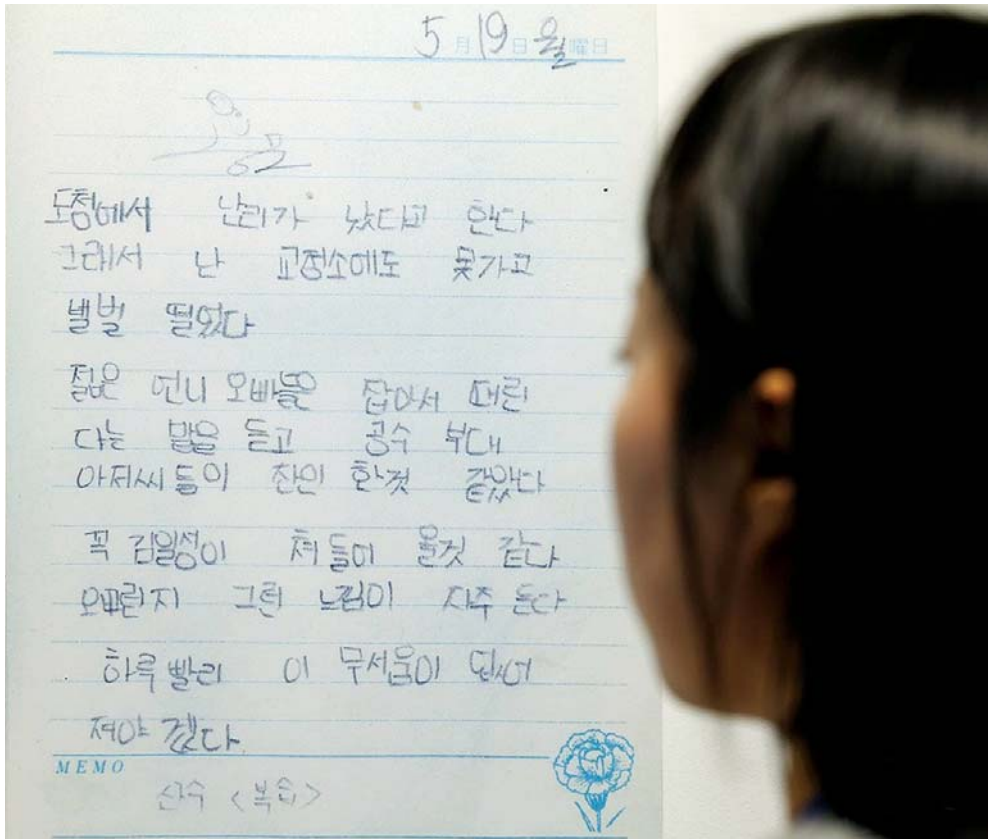 5月 19日 월曜日
도청에서 난리가 났다고 한다
그래서 난 교정소에도 못가고
벌벌 떨었다
젊은 언니 오빠들은 잡아서 때린
다는 말을 듣고 공수 부대
아저씨들이 잔인 한것 같았다
꼭 김일성이 처들어 올것 같다
그런 느낌이 자주 든다
하루 빨리 이 무서움이 업써
져야 겠다
MEMO
산수 <복습>